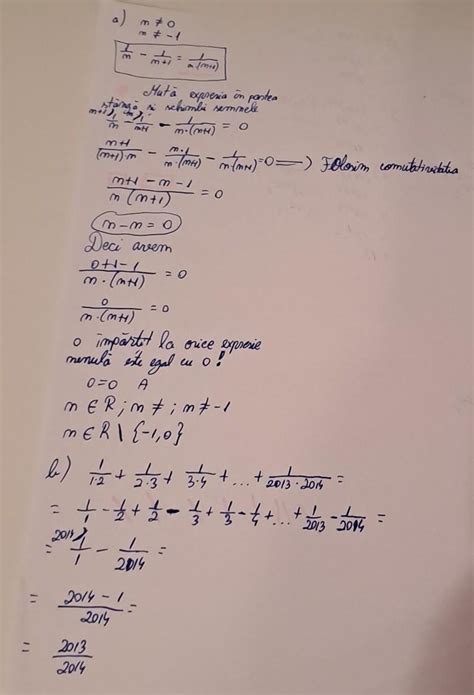 a) n ≠ 0
n ≠ -1
1/n - 1/(n+1) = 1/(n·(n+1))
Mută expresia în partea
stângă și schimbă semnele
n+1) 1/n - n) 1/(n+1) - 1/(n·(n+1)) = 0
(n+1)/((n+1)·n) - n·1/(n·(n+1)) - 1/(n(n+1)) = 0 => Folosim comutativitatea
(n+1-n-1)/(n(n+1)) = 0
n-n=0
Deci avem
(0+1-1)/(n·(n+1)) = 0
0/(n·(n+1)) = 0
0 împărțit la orice expresie
nenulă este egal cu 0!
0=0 A
n ∈ R ; n ≠ ; n ≠ -1
n ∈ R \ {-1,0}
b) 1/(1·2) + 1/(2·3) + 1/(3·4) + ... + 1/(2013·2014) =
= 1/1 - 1/2 + 1/2 - 1/3 + 1/3 - 1/4 + ... + 1/2013 - 1/2014 =
= 2014) 1/1 - 1/2014 =
= (2014-1)/2014 =
= 2013/2014